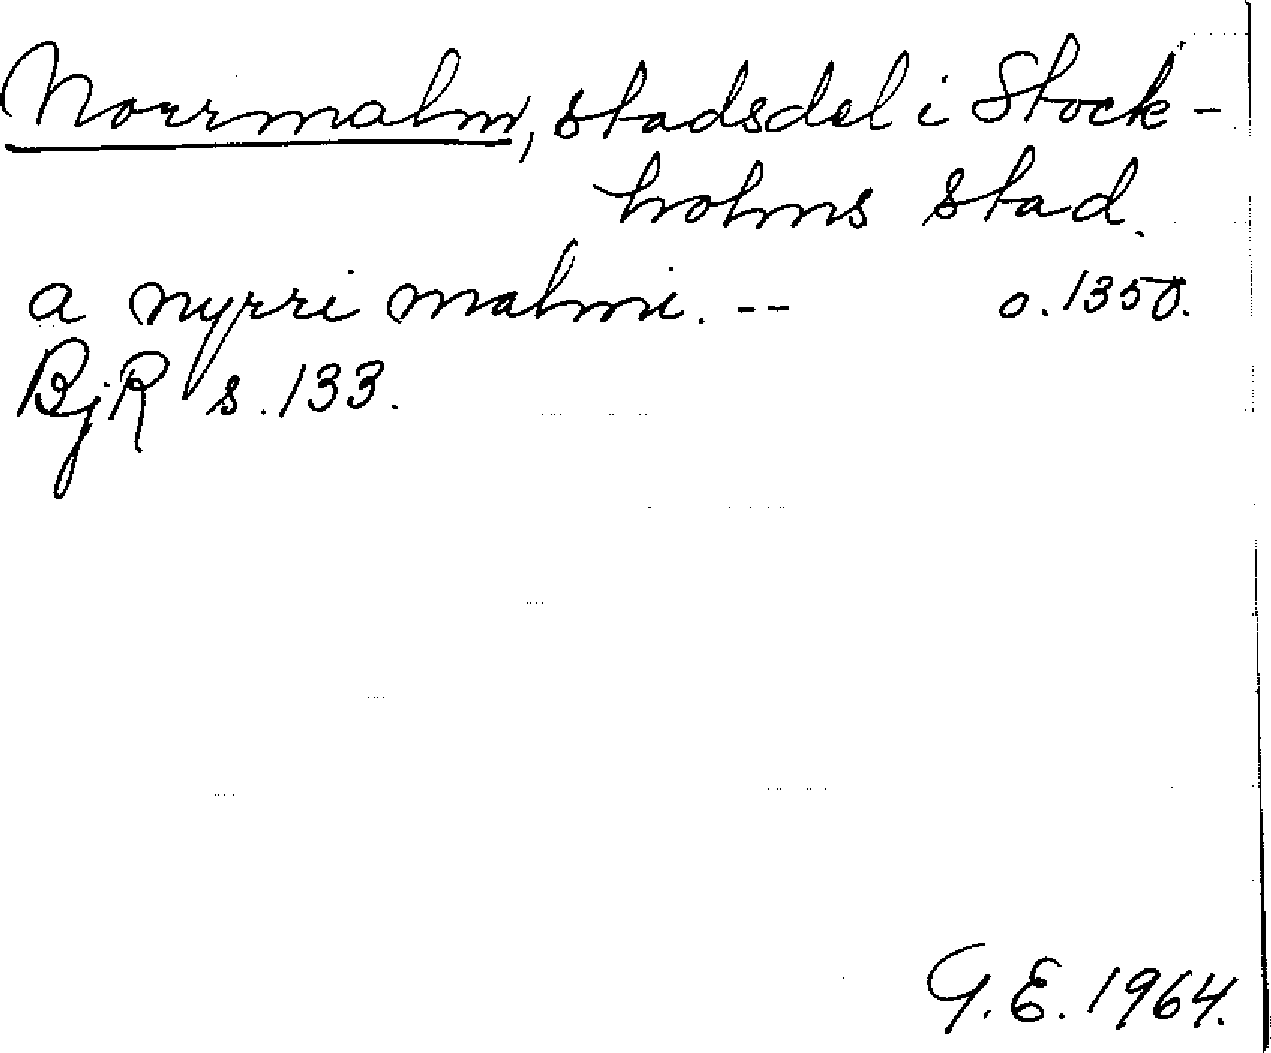 Norrmalm, stadsdel i Stock-
holms stad.
a nyrri malmi. -- o. 1350.
BjR s. 133.
G.E. 1964.